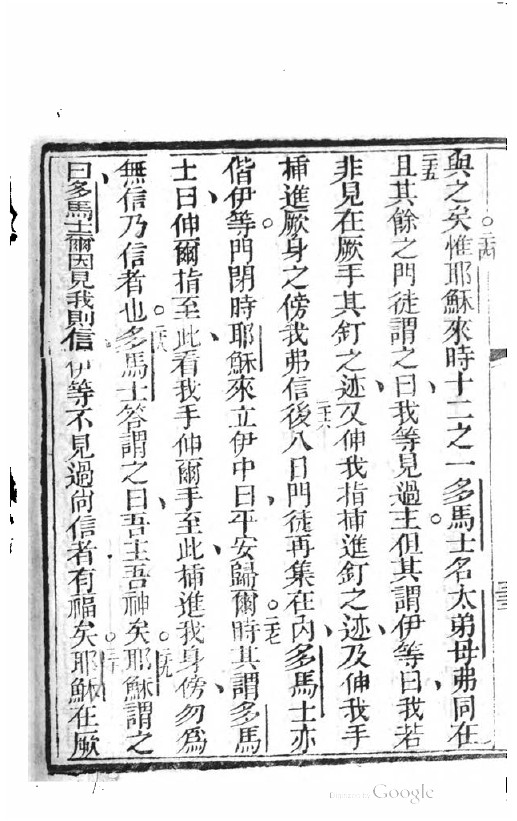 與之矣○二十四惟耶穌來時十二之一多馬士名太弟母弗同在
二十五且其餘之門徒謂之曰我等見過主○但其謂伊等曰我若
非見在厥手其釘之迹又伸我指揷進釘之迹及伸我手
揷進厥身之傍我弗信二十六後八日門徒再集在內多馬士亦
偕伊等○門閉時耶穌來立伊中曰平安歸爾○二十七時其謂多馬
士曰伸爾指至此看我手伸爾手至此揷進我身傍勿為
無信乃信者也○二十八多馬士答謂之曰吾主吾神矣○二十九耶穌謂之
曰多馬士爾因見我則信伊等不見過尚信者有福矣○三十耶穌在厥
Digitized by Google